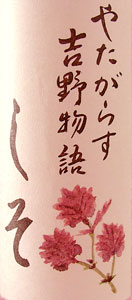 やたがらす
吉野物語
しそ